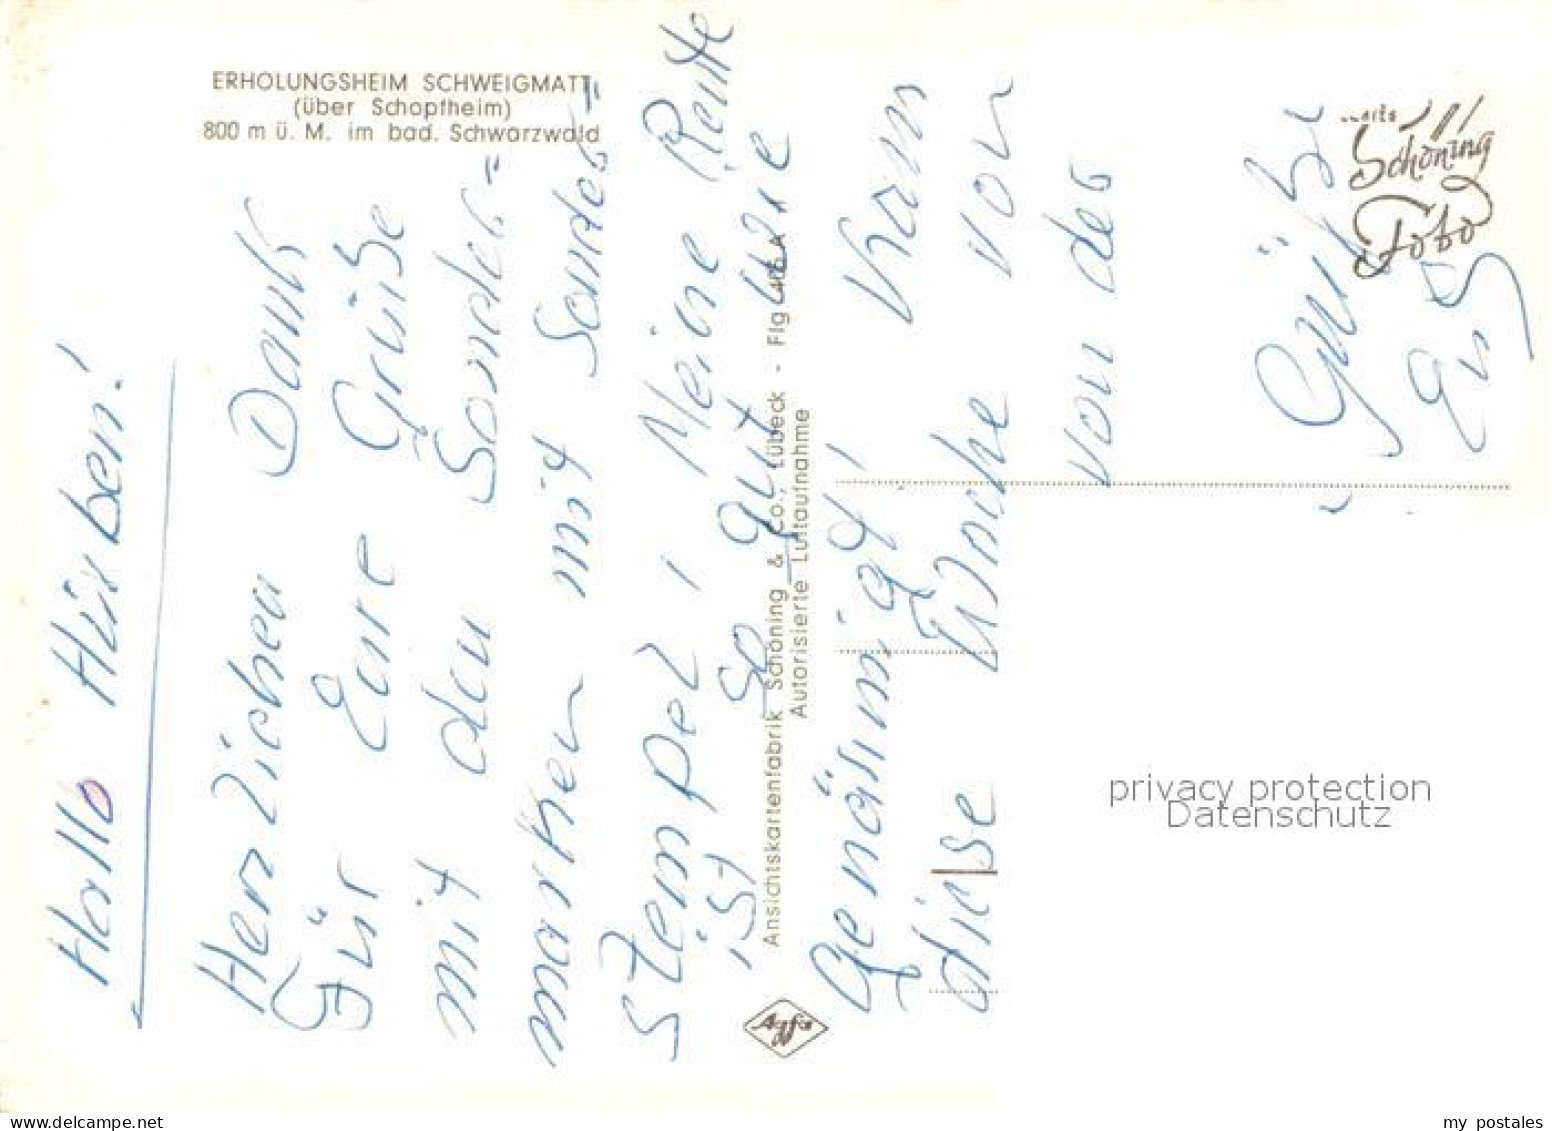 ERHOLUNGSHEIM SCHWEIGMATT
(über Schopfheim)
800 m ü. M. im bad. Schwarzwald
Hallo Hürben!
Herzlichen Dank
Für Eure Grüße
mit den Sonder=
marken mit Sonder=
stempel! Meine Rente
ist so gut wie
genässmigt!
diese Woche von
Kam von der
Grüße
Ansichtskartenfabrik Schöning & Co., Lübeck - Flg. 406 A
Autorisierte Luftaufnahme
Agfa
Schöning
Foto
privacy protection
Datenschutz
my postales